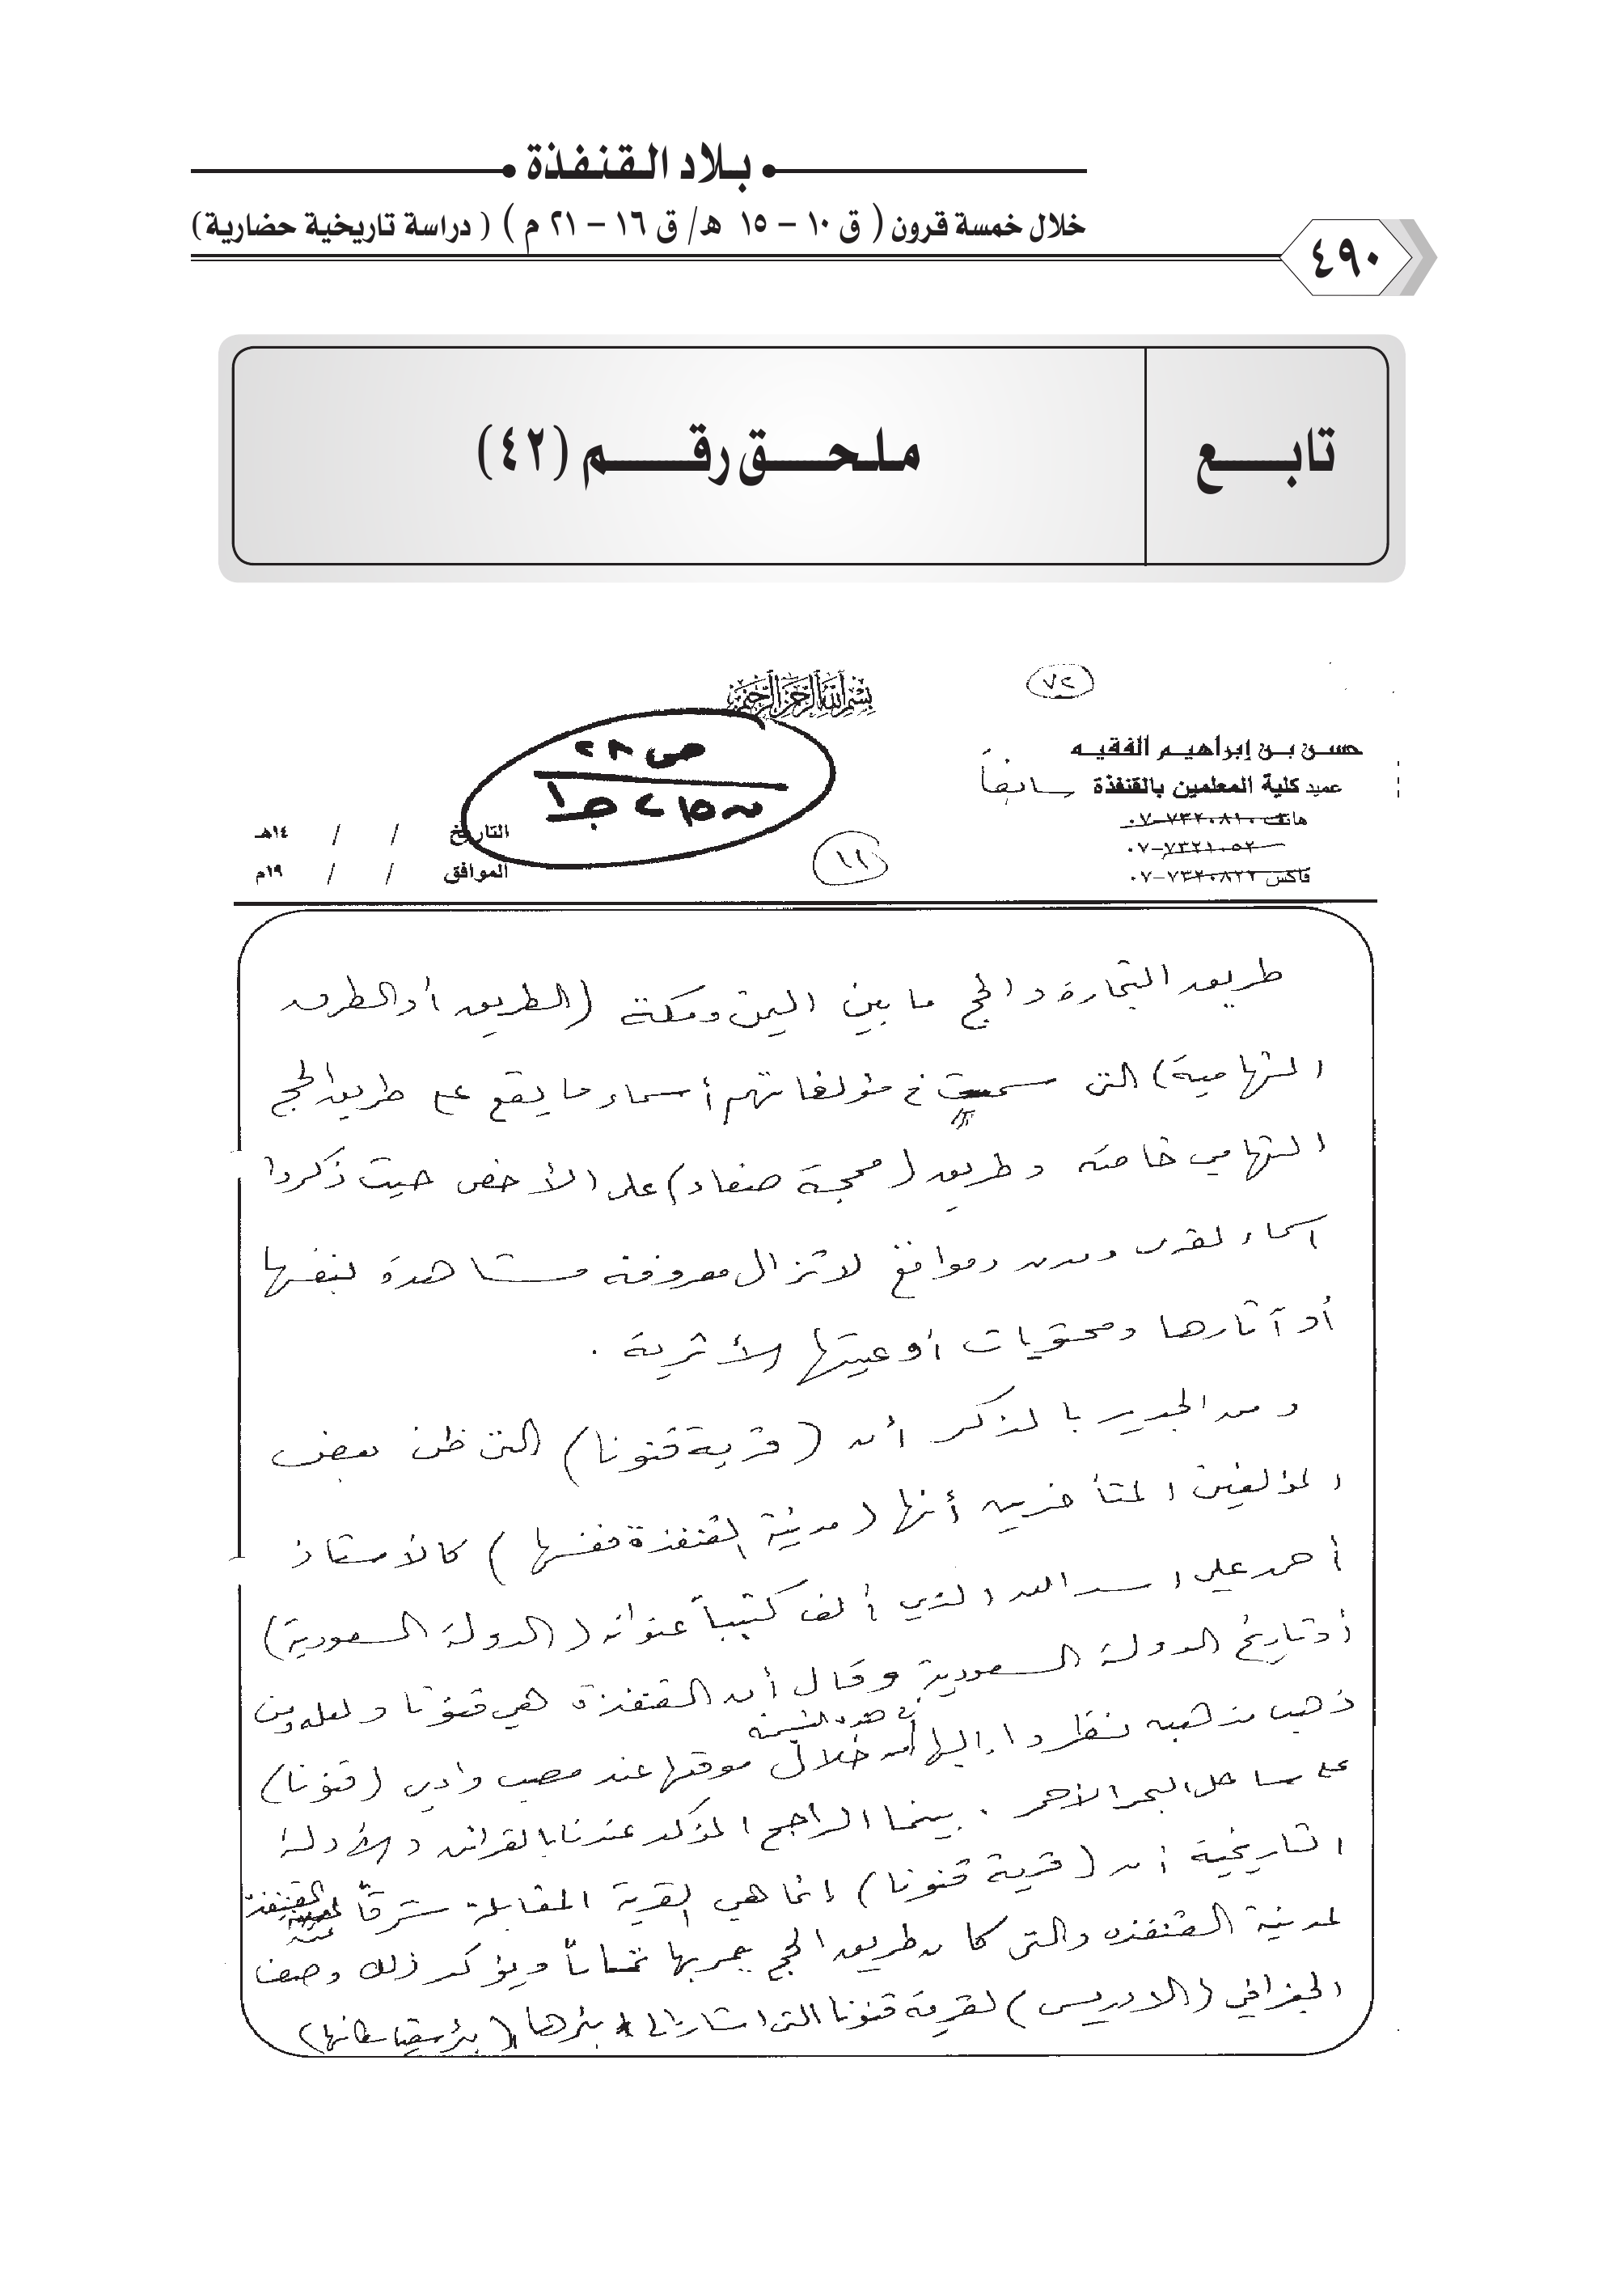 بلاد القنفذة
خلال خمسة قرون ( ق ١٠ – ١٥ هـ/ ق ١٦ – ٢١ م ) ( دراسة تاريخية حضارية)
٤٩٠
تابع
ملحق رقم (٤٢)
٧٢
بسم الله الرحمن الرحيم
حسن بن إبراهيم الفقيه
عميد كلية المعلمين بالقنفذة سابقاً
هاتف ٧٣٢٠٨١٠-٠٧
٧٣٢١٠٥٢-٠٧
فاكس ٧٣٢٠٨٢٢-٠٧
ص ٢٨
التاريخ / / ١٤هـ
الموافق / / ١٩م
١١
طريق التجارة والحج ما بين اليمن ومكة (الطريق أو الطرق
التهامية) التي سميت في مؤلفاتهم أسماء ما يقع على طريق الحج
التهامي خاصة وطريق (محجة صنعاء) على الأخص حيث ذكروا
أسماء لقرى ومدن ومواقع لا تزال معروفة مشاهدة بنفسها
أو آثارها ومحتويات أوعيتها الأثرية .
ومن الجدير بالذكر أن (قرية قنونا) التي ظن بعض
المؤلفين المتأخرين أنها (مدينة القنفذة نفسها) كالأستاذ
أحمد علي أسد الله الذي ألف كتيباً عنوانه (الدولة السعودية)
أو تاريخ الدولة السعودية وقال أن القنفذة هي قنونا ولعله ومن
ذهب مذهبه نظروا إليها من خلال موقعها عند مصب وادي (قنونا)
في هذه التسمية
على ساحل البحر الأحمر . بينما الراجح المؤكد عندنا بالقرائن والأدلة
التاريخية أن (قرية قنونا) إنما هي القرية المقابلة شرقاً القنفذة
لمدينة القنفذه والتي كان طريق الحج يمر بها تماماً ويؤكد ذلك وصف
الجغرافي (الادريسي) لقرية قنونا التي اشار إلى بئرها (بئر يسقي سكانها)